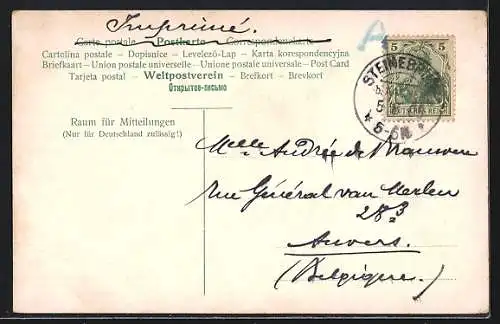 Imprimé.
Carte postale Postkarte Correspondenzkarte
Cartolina postale - Dopisnice - Levelező-Lap - Karta korespondencyjna
Briefkaart - Union postale universelle - Unione postale universale - Post Card
Tarjeta postal - Weltpostverein - Brefkort - Brevkort
Открытое-письмо
Raum für Mitteilungen
(Nur für Deutschland zulässig!)
A
5 5
DEUTSCHES REICH
5-6N
Melle Andrée de Brauwere
rue Général van Merlen
28³
Anvers.
(Belgique)